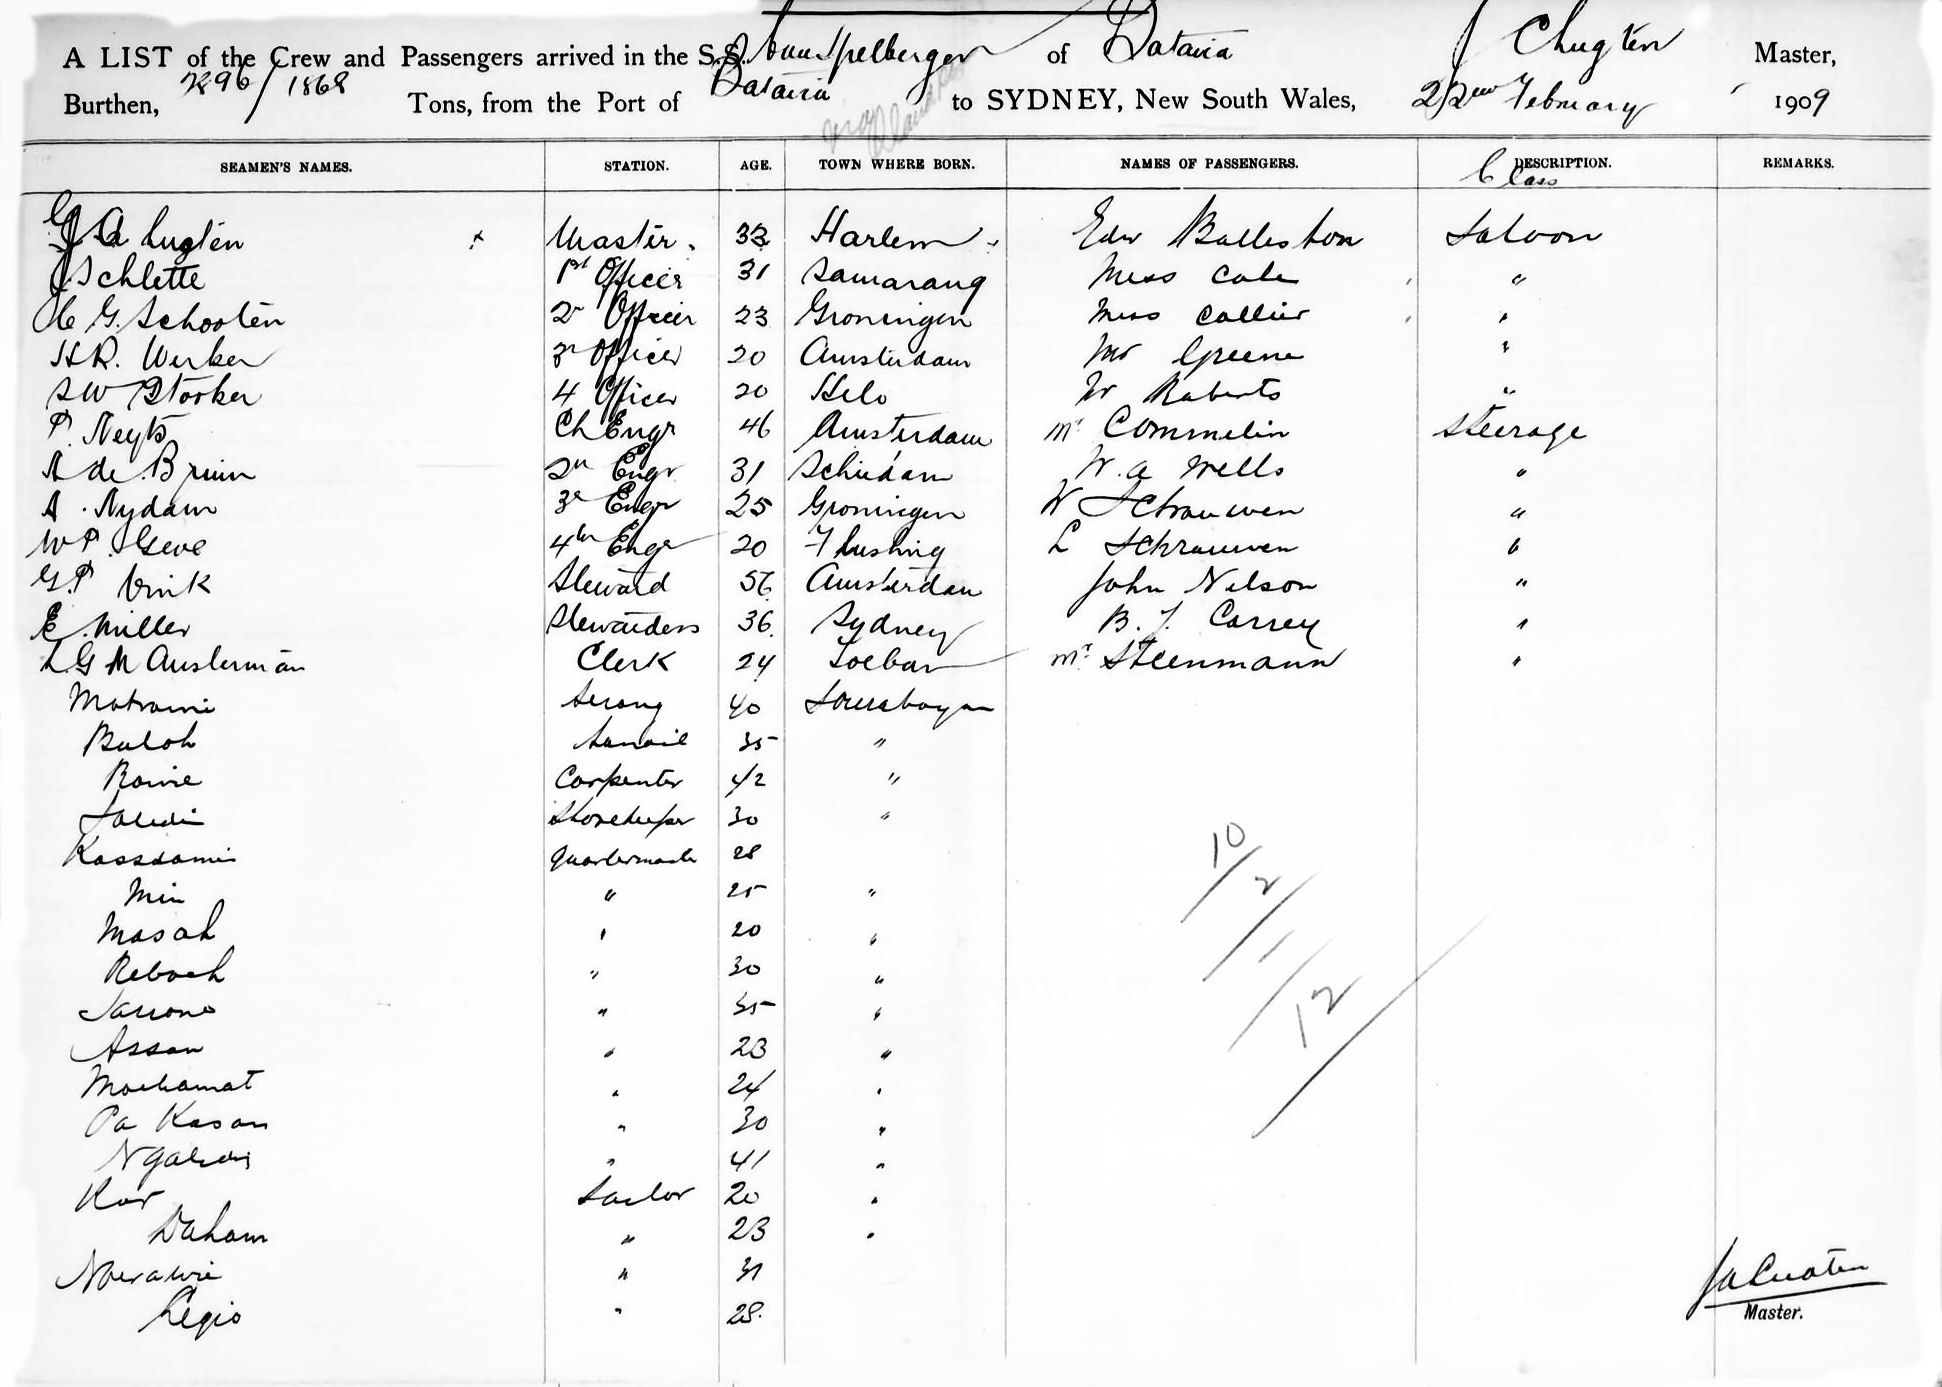 A LIST of the Crew and Passengers arrived in the S.S. van Spelbergen of Batavia J Chugten Master,
Burthen, 2296/1868 Tons, from the Port of Batavia to SYDNEY, New South Wales, 22nd February 1909
SEAMEN'S NAMES. STATION. AGE. TOWN WHERE BORN. NAMES OF PASSENGERS. DESCRIPTION. REMARKS.
Class
J A Lugten x Master. 33 Harlem Edw Balleston Saloon
J Schlette 1st Officer 31 Samarang Miss Cole "
H. G. Schooten 2n Officer 23 Groningen Miss Collier "
H R. Werker 3r Officer 20 Amsterdam Mr Greene "
S W Stooker 4 Officer 20 Helo W Roberts "
P. Neyts Ch Engr 46 Amsterdam Mr Commelin Steerage
A de Bruin 2n Engr 31 Schiedam W. A Wells "
A. Nydam 3r Engr 25 Groningen W Schrauwen "
W P. Geve 4th Engr 20 Flushing L Schrauwen "
G. P Vink Steward 56 Amsterdam John Nelson "
E. Miller Stewardess 36 Sydney B. J. Carrey "
L. G M Austerman Clerk 24 Toeban Mr Steenmann "
Matrami Serang 40 Sourabaya
Buloh 35 "
Romie Carpenter 42 "
Saledin Storekeeper 30 "
Kassdami Quartermaste 28
Min " 25 "
Masah " 20 "
Reboch " 30 "
Sarrono " 35 "
Assan " 23 "
Mochamat " 24 "
Pa Kasan " 30 "
Ngalidi " 41 "
Kar Sailor 20 "
Daham " 23 "
Noerawie " 31
Legio " 28.
10/2/1/12
J A Lugten
Master.